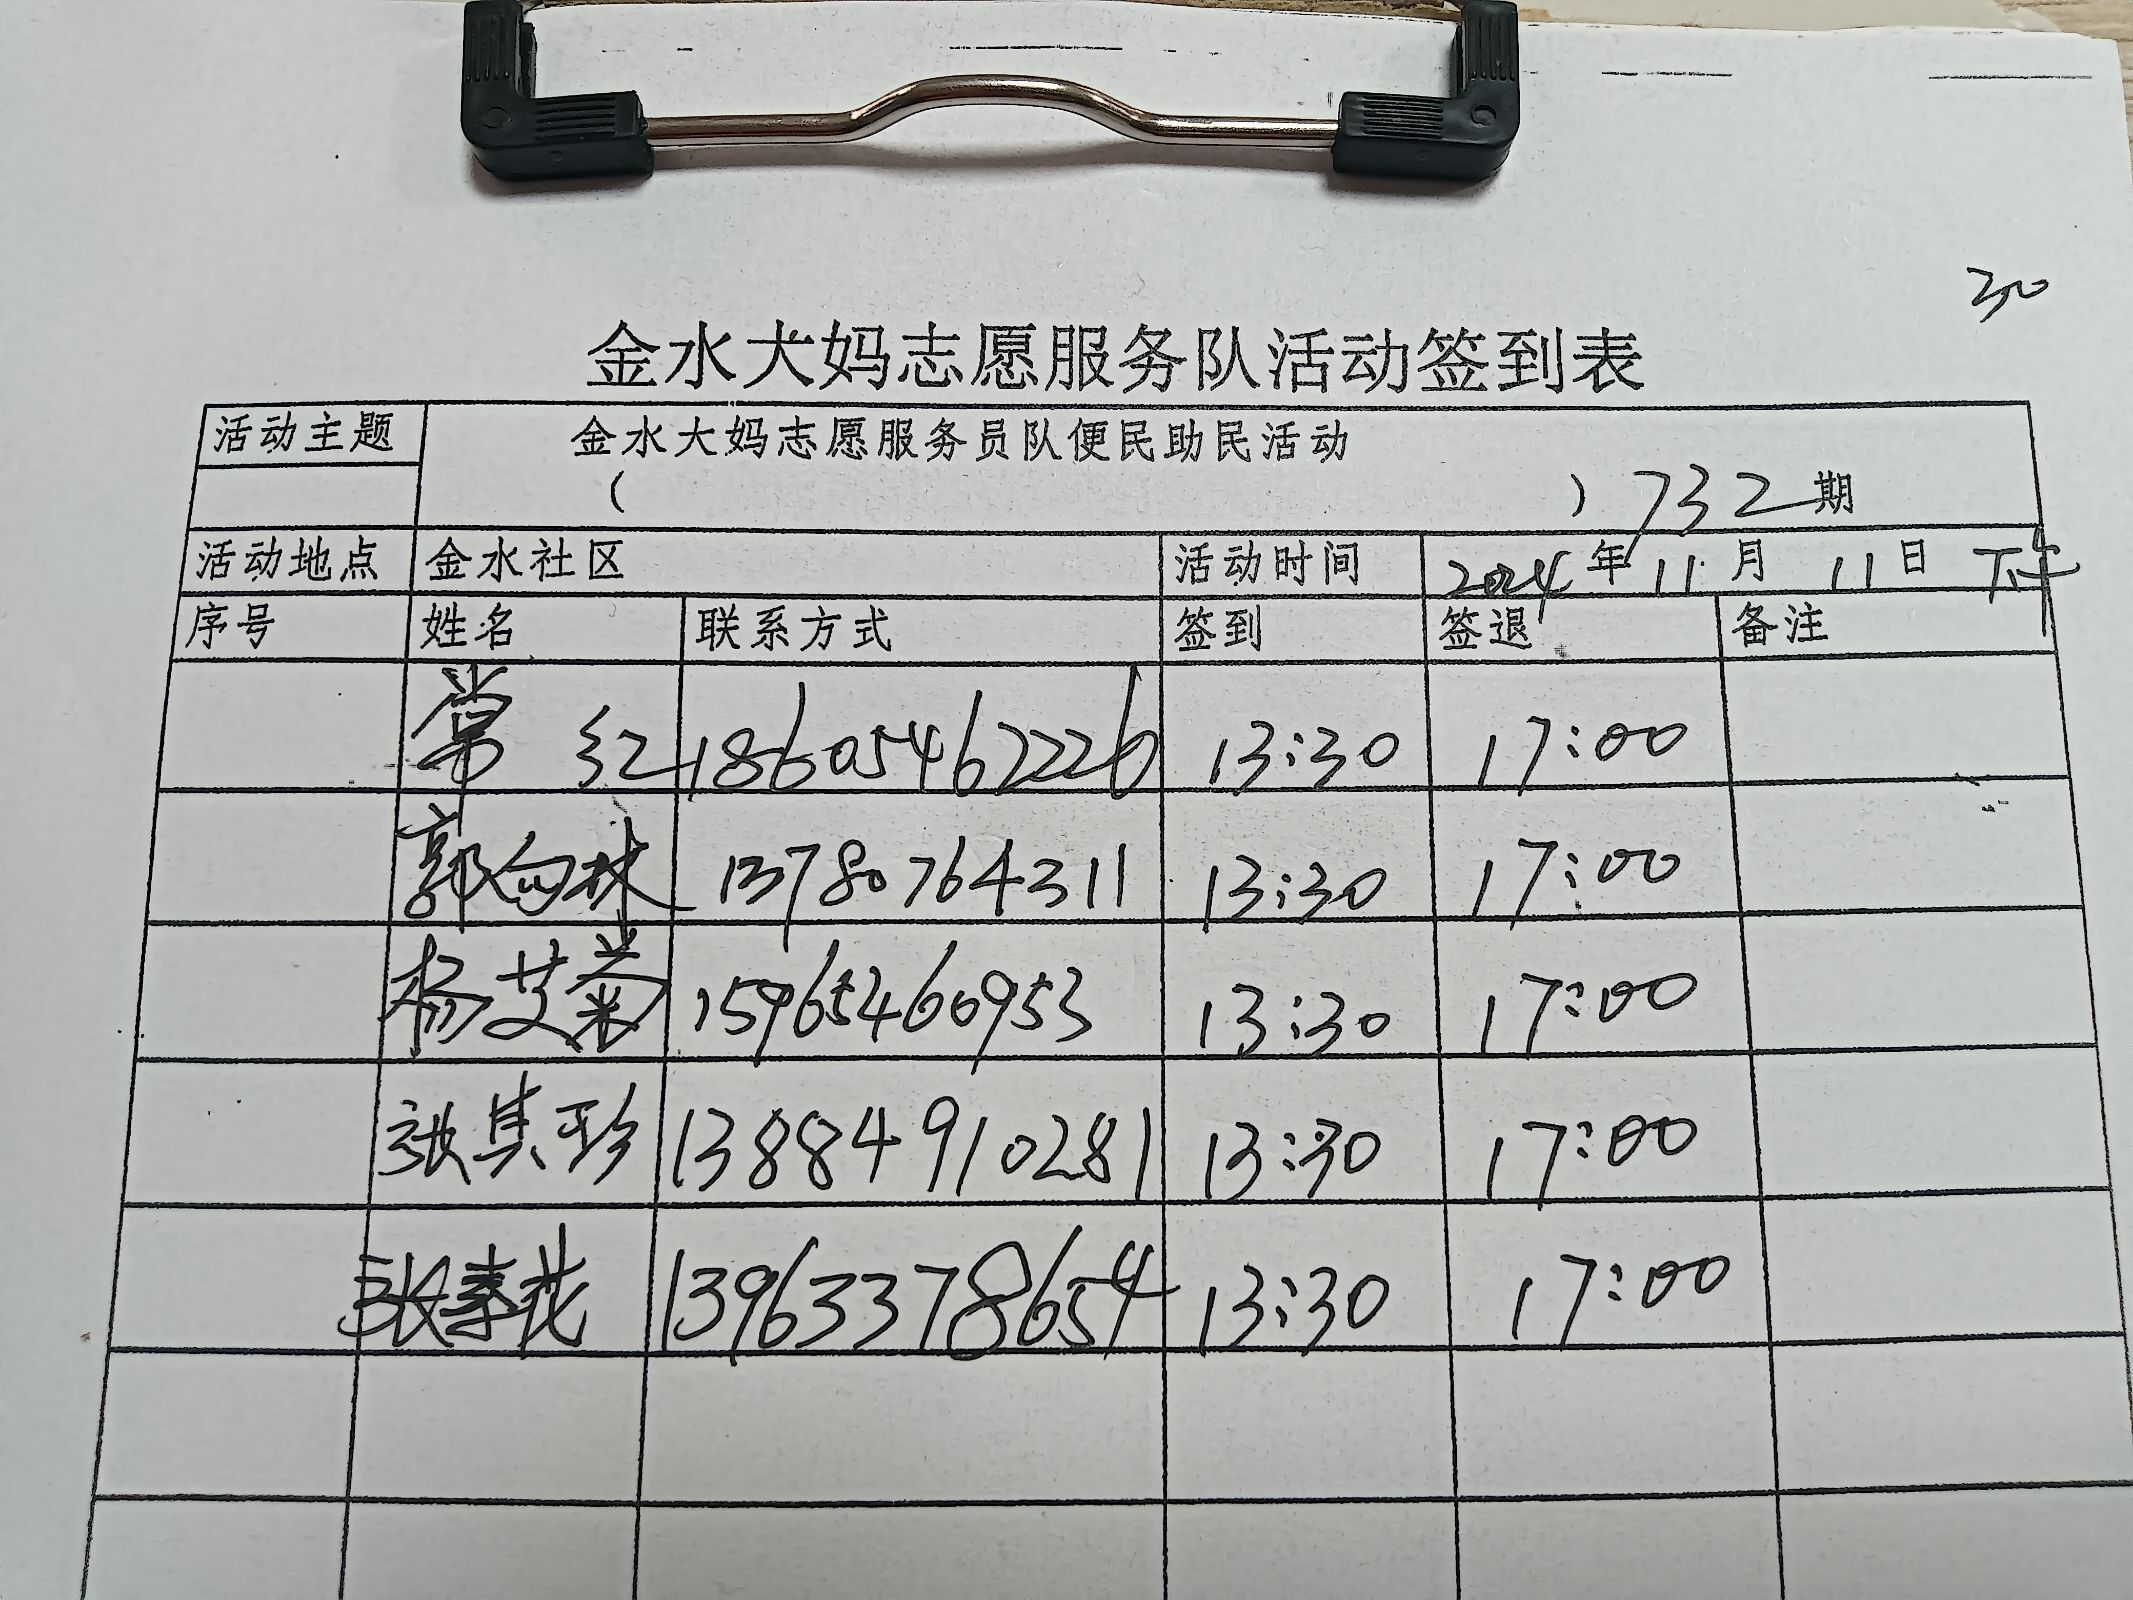 30
金水大妈志愿服务队活动签到表
活动主题 金水大妈志愿服务员队便民助民活动
( ) 732期
活动地点 金水社区 活动时间 2024年11月11日 下午
序号 姓名 联系方式 签到 签退 备注
常红 18605462226 13:30 17:00
郭向林 13780764311 13:30 17:00
杨艾菊 15965460953 13:30 17:00
张其珍 13884910281 13:30 17:00
张素花 13963378654 13:30 17:00